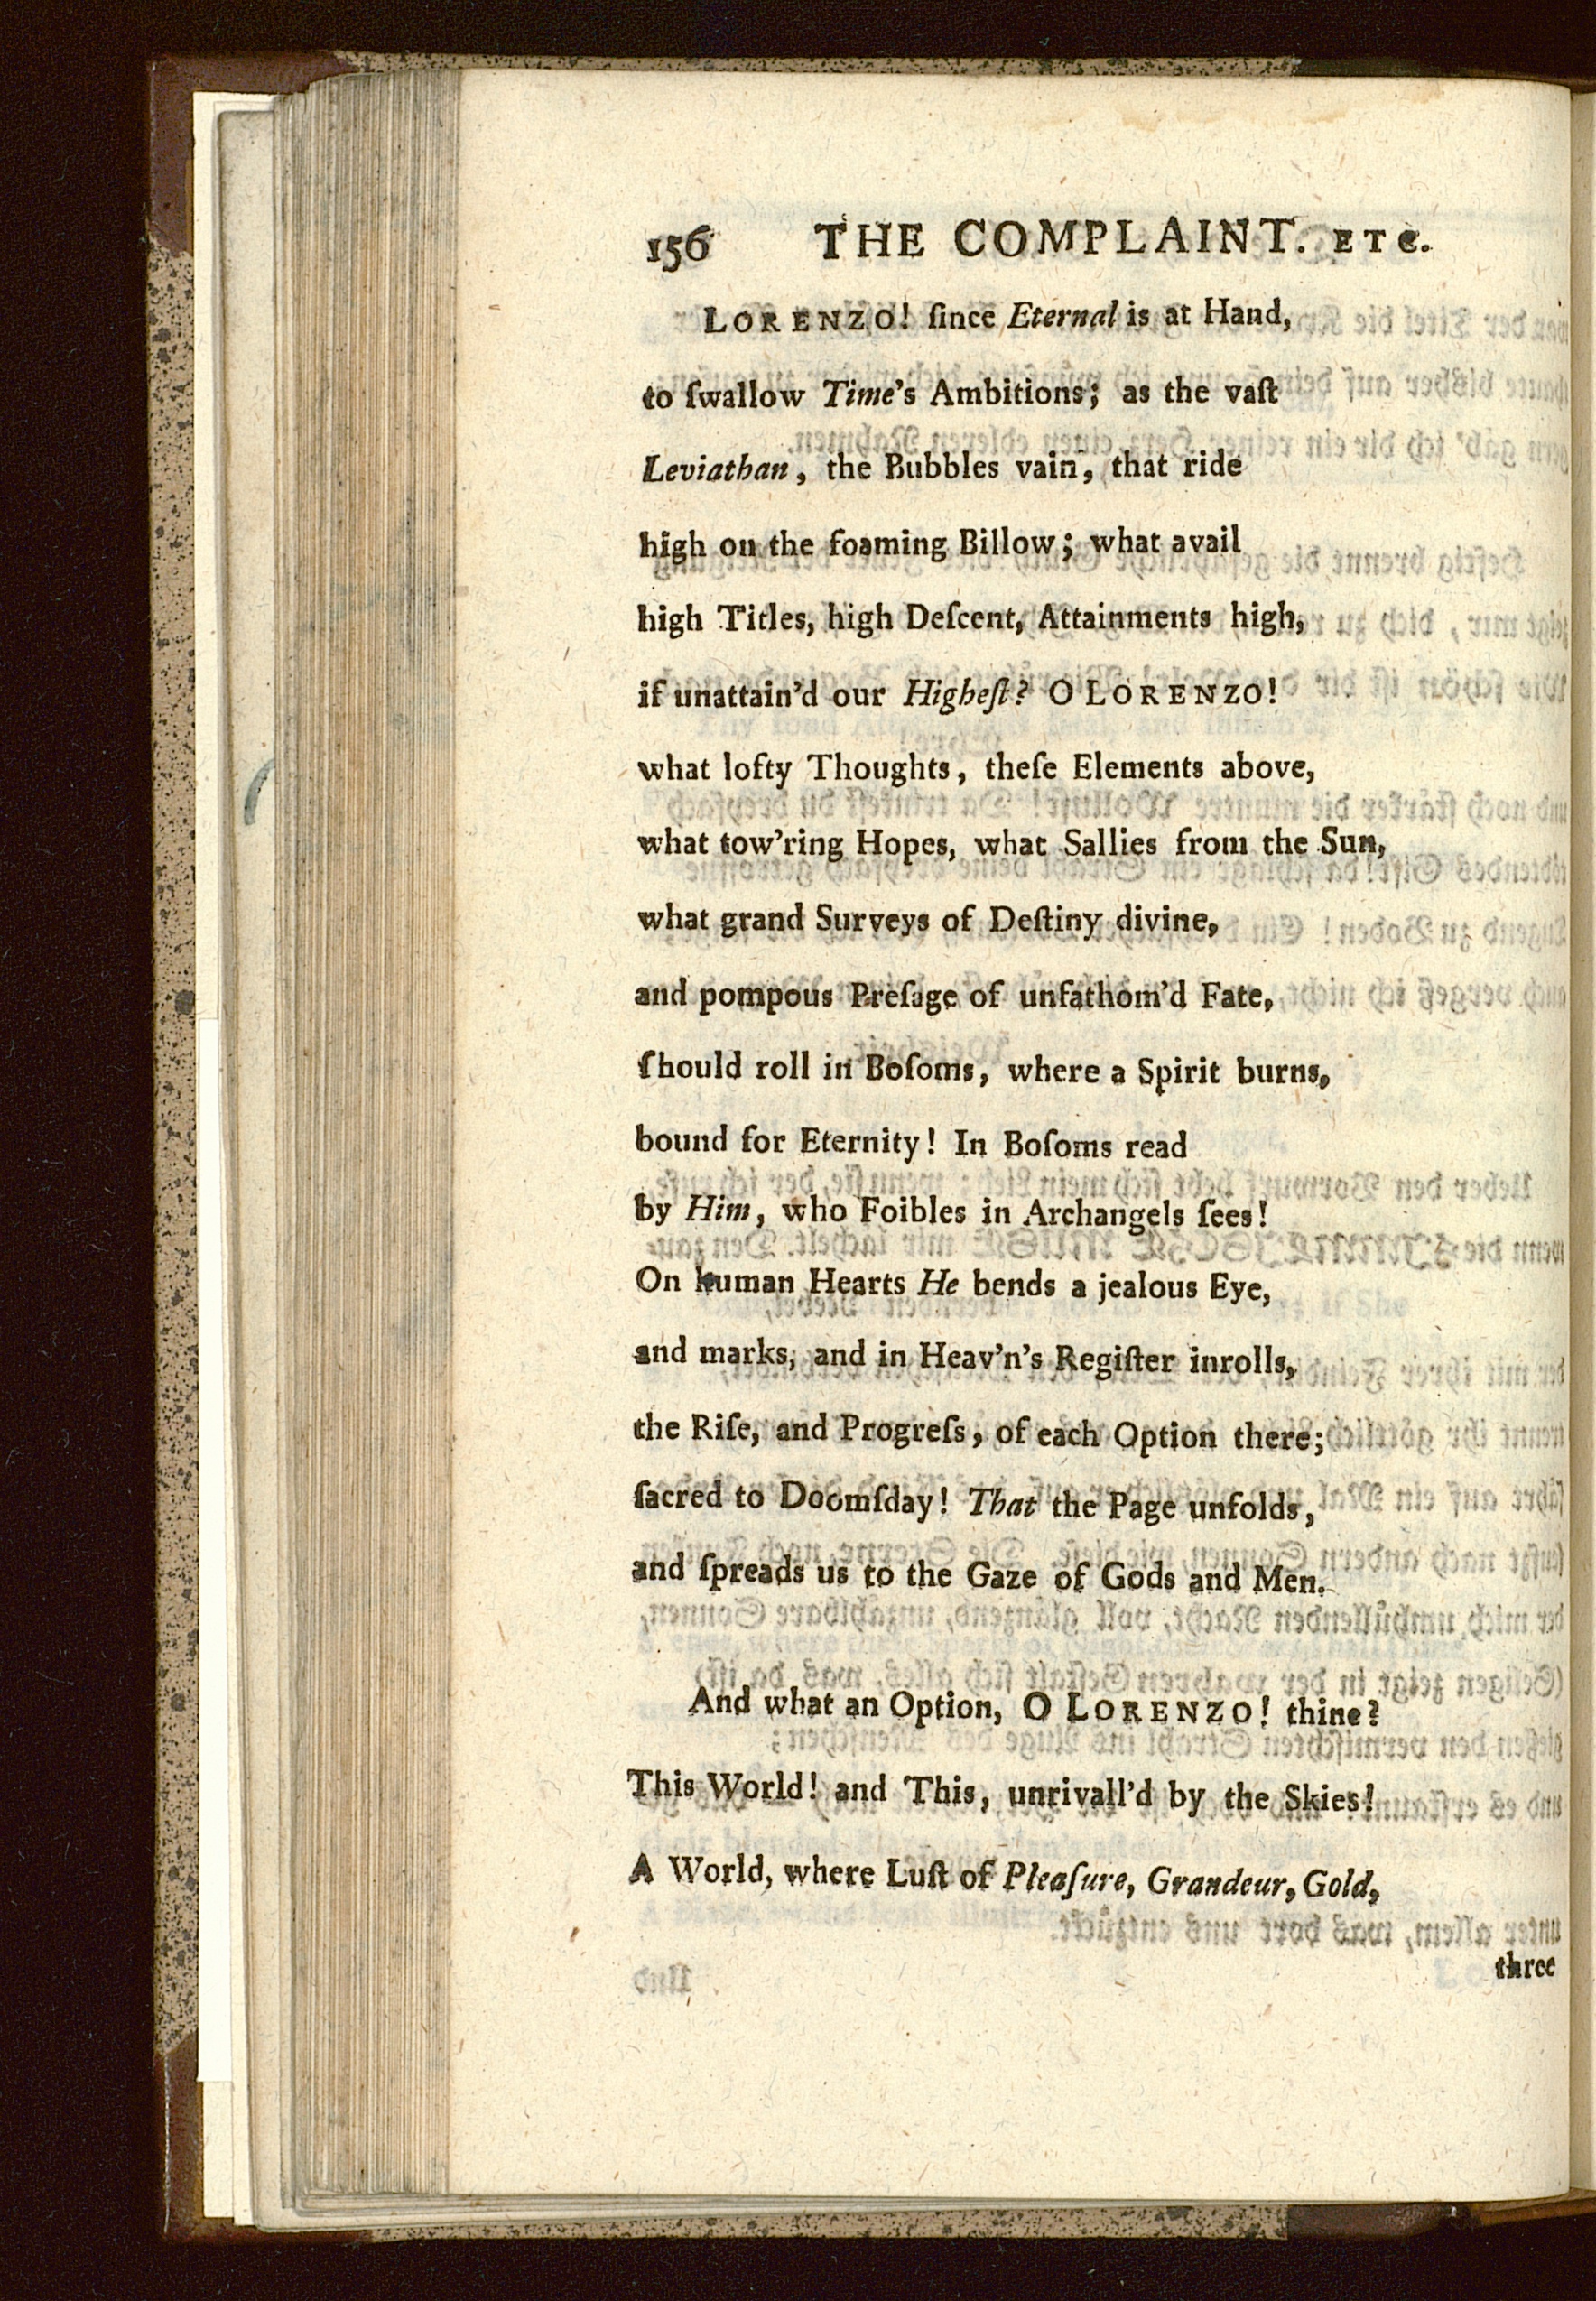 156 THE COMPLAINT. ETC.
LORENZO! ſince Eternal is at Hand,
to ſwallow Time's Ambitions; as the vaſt
Leviathan, the Bubbles vain, that ride
high on the foaming Billow; what avail
high Titles, high Deſcent, Attainments high,
if unattain'd our Higheſt? O LORENZO!
what lofty Thoughts, theſe Elements above,
what tow'ring Hopes, what Sallies from the Sun,
what grand Surveys of Deſtiny divine,
and pompous Preſage of unfathom'd Fate,
ſhould roll in Boſoms, where a Spirit burns,
bound for Eternity! In Boſoms read
by Him, who Foibles in Archangels ſees!
On human Hearts He bends a jealous Eye,
and marks, and in Heav'n's Regiſter inrolls,
the Riſe, and Progreſs, of each Option there;
ſacred to Doomſday! That the Page unfolds,
and ſpreads us to the Gaze of Gods and Men.
And what an Option, O LORENZO! thine?
This World! and This, unrivall'd by the Skies!
A World, where Luſt of Pleaſure, Grandeur, Gold,
three